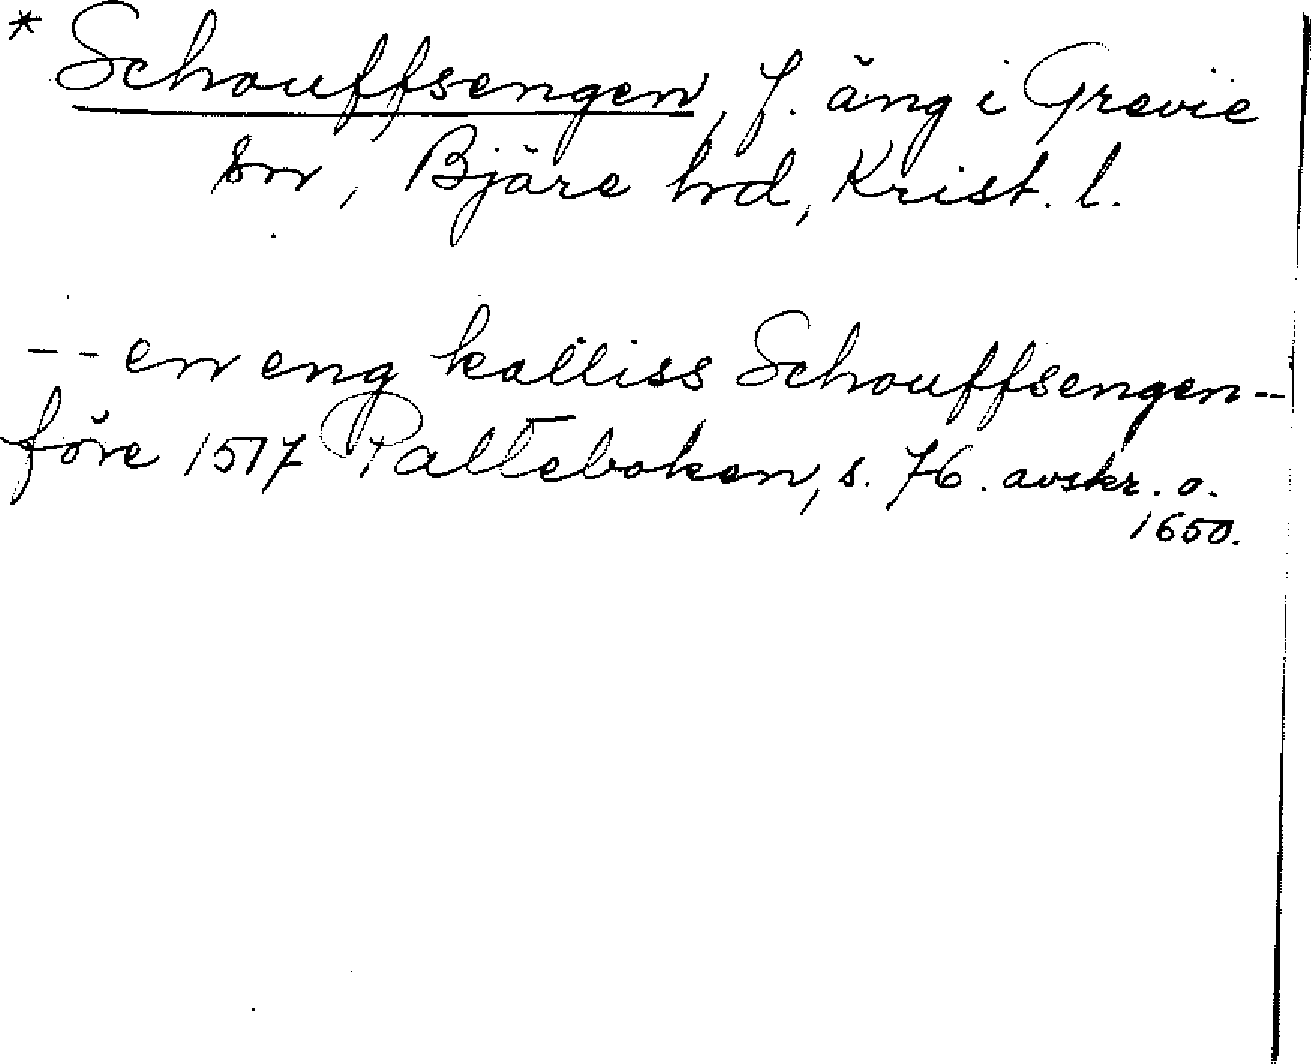 * Schouffsengen, f. äng i Grevie
sn, Bjäre hd, Krist. l.
-- en eng kalliss Schouffsengen--
före 1517 Palteboken, s. 76. avskr. o.
1650.